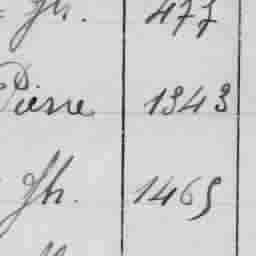 Jh. 477
Pierre 1343
Jh. 1465